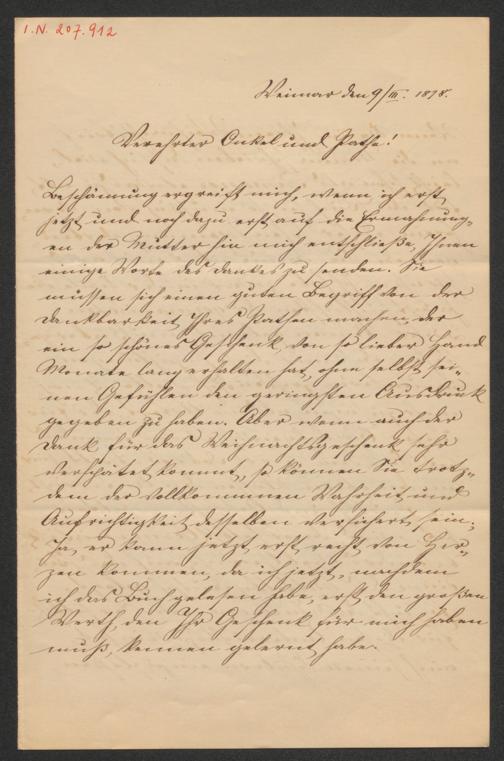 I.N. 207.912
Weimar den 9/III. 1878.
Verehrter Onkel und Pathe!
Beschämung ergreift mich, wenn ich erst
jetzt und noch dazu erst auf die Ermahnung-
en der Mutter hin mich entschließe, Ihnen
einige Worte des Dankes zu senden. Sie
müssen sich einen guten Begriff von der
Dankbarkeit Ihres Pathen machen, der
ein so schönes Geschenk von so lieber Hand
Monate lang erhalten hat, ohne selbst sei-
nen Gefühlen den geringsten Ausdruck
gegeben zu haben. Aber wenn auch der
Dank für das Weihnachtsgeschenk sehr
verspätet kommt, so können Sie trotz-
dem der vollkommnen Wahrheit und
Aufrichtigkeit desselben versichert sein.
Ja, er kann jetzt erst recht von Her-
zen kommen, da ich jetzt, nachdem
ich das Buch gelesen habe, erst den großen
Werth, den Ihr Geschenk für mich haben
muß, kennen gelernt habe.